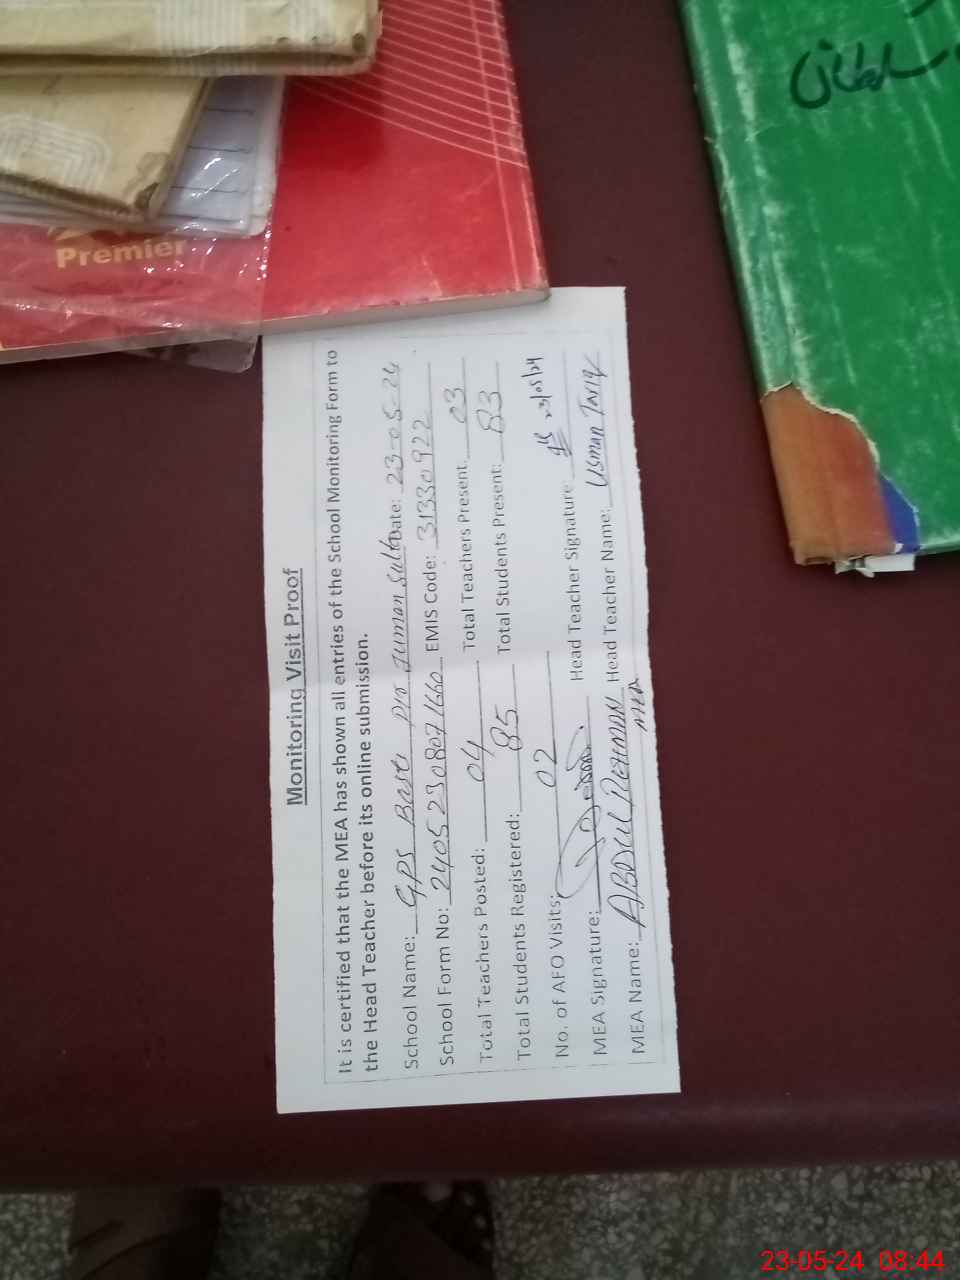 سلطان
Premier
Monitoring Visit Proof
It is certified that the MEA has shown all entries of the School Monitoring Form to
the Head Teacher before its online submission.
School Name: GPS Basti Pir Juman Sultan Date: 23-05-24
School Form No: 24052308071660 EMIS Code: 31330922
Total Teachers Posted: 04 Total Teachers Present: 03
Total Students Registered: 85 Total Students Present: 83
No. of AFO Visits: 02
MEA Signature: Head Teacher Signature: 23/05/24
MEA Name: ABDUL REHMAN Head Teacher Name: Usman Tariq
MEA
23-05-24 08:44